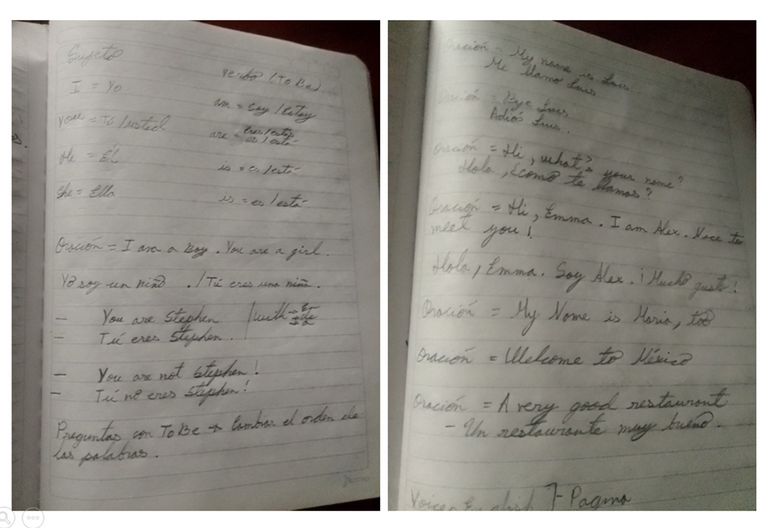 Sujeto
verbo / To Be)
I = Yo
am = soy / estoy
= Tú / usted
are = eres / estás
es / está
He = Él
is = es / está
She = Ella
is = es / está
Oración = I am a Boy. You are a girl.
Yo soy un niño. / Tú eres una niña.
— You are Stephen
— Tú eres Stephen.
with
— You are not Stephen!
— Tú no eres Stephen!
Preguntas con To Be → Cambiar el orden de
las palabras.
Oración = My name is Luis
Me llamo Luis
Oración = Bye Luis
Adiós Luis.
Oración = Hi, what's your name?
Hola, ¿cómo te llamas?
Oración = Hi, Emma. I am Alex. Nice to
meet you!
Hola, Emma. Soy Alex. ¡Mucho gusto!
Oración = My Name is Maria, too
Oración = Welcome to México
Oración = A very good restaurant
- Un restaurante muy bueno.
Pagina